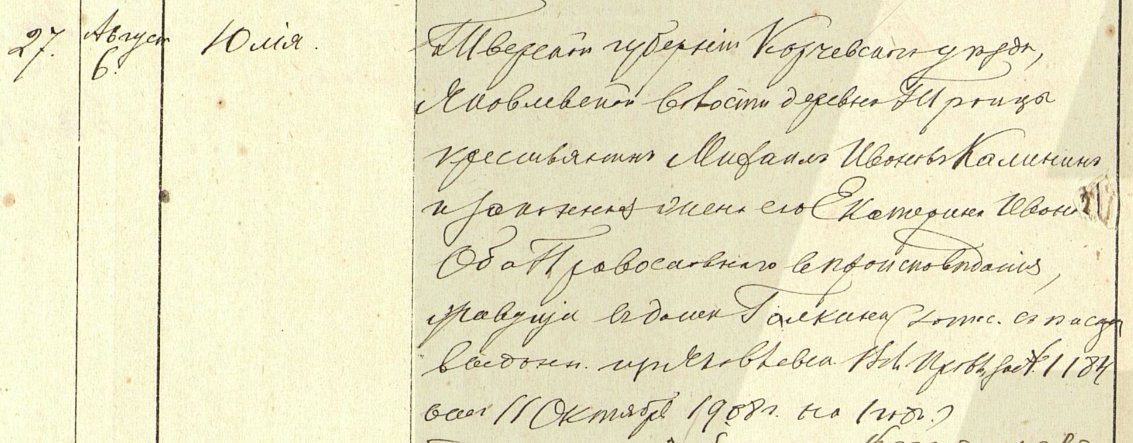 27. Август 6. Юлія. Тверской губерніи Корчевскаго уѣзда,
Яковлевской волости деревни Троицы
крестьянинъ Михаилъ Ивановъ Калининъ
и законная жена его Екатерина Ивано
Оба Православнаго вѣроисповѣданія,
въ домѣ Галкина
Яковлевск. Вол. Правл. за № 1184
11 Октября 1908 г. на 1 годъ)